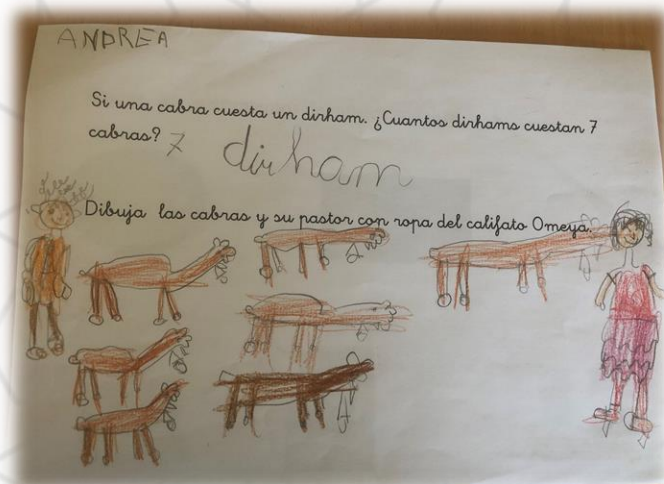 ANDREA
Si una cabra cuesta un dirham. ¿Cuantos dirhams cuestan 7
cabras? 7 dirham
Dibuja las cabras y su pastor con ropa del califato Omeya.